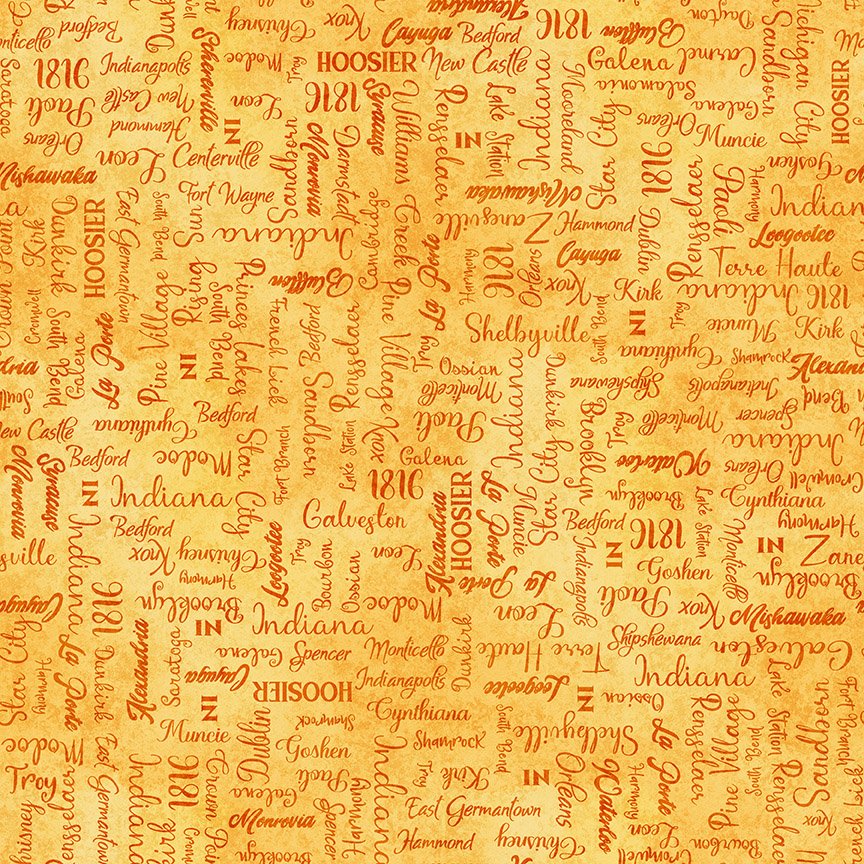 Alexandria
Bedford
Chrisney
Knox
Cayuga
Bedford
1816
Bluffton
Dayton
Indiana
Monticello
Dunkirk
Schererville
Modoc
Troy
HOOSIER
New Castle
Galena
Carmel
Sandborn
Michigan City
HOOSIER
Saratoga
1816
Indianapolis
Paoli
New Castle
Leon
1816
Syracuse
Williams Creek
Rensselaer
Lake Station
Indiana
Mooreland
Salamonia
Star City
Galena
Orleans
Muncie
Orleans
Hammond
IN
Sandborn
Monrovia
Darmstadt
IN
Leon
Centerville
1816
Goshen
Mishawaka
Fort Wayne
Mishawaka
Rensselaer
Paoli
Harmony
Indiana
Crown Point
Kirk
Dunkirk
HOOSIER
East Germantown
South Bend
Rising Sun
Indiana
Cambridge
La Porte
Zanesville
Hammond
Dublin
Loogootee
Cayuga
Terre Haute
Cromwell
South Bend
Pine Village
Princes Lakes
South Bend
Bluffton
Harmony
1816
Orleans
Knox
Kirk
Indiana
1816
Galena
La Porte
French Lick
Bedford
Rensselaer
Pine Village
Troy
Shelbyville
South Bend
IN
Troy
Muncie
Kirk
Alexandria
IN
Sandborn
Ossian
Indiana
Cynthiana
Shamrock
Alexandria
South Bend
Monticello
Dunkirk
Shipshewana
Indianapolis
Bend
New Castle
Cynthiana
Bedford
Star City
Paoli
Brooklyn
Troy
Monticello
Spencer
Indiana
Monrovia
Syracuse
Bedford
Modoc
Fort Branch
Lake Station
Knox
Galena
Star City
Waterloo
Orleans
Cromwell
IN
Indiana
1816
HOOSIER
La Porte
Muncie
Brooklyn
Lake Station
Cynthiana
Indiana
Bedford
Loogootee
Galveston
Alexandria
Bedford
1816
Monticello
Harmony
Knox
Chrisney
Troy
Bourbon
Ossian
Leon
Indianapolis
IN
IN
Zanesville
Harmony
La Porte
Goshen
Brooklyn
Cayuga
1816
Brooklyn
Modoc
Leon
Paoli
Knox
Mishawaka
Star City
La Porte
Alexandria
IN
Indiana
Dunkirk
Shipshewana
Galveston
Harmony
Dunkirk
Saratoga
Galena
Spencer
Monticello
Terre Haute
Indiana
Cayuga
HOOSIER
Indianapolis
Loogootee
IN
Ossian
Rensselaer
Lake Station
Fort Branch
IN
Dublin
Shamrock
Cynthiana
South Bend
La Porte
Pine Village
Sandborn
Modoc
East Germantown
Muncie
Goshen
Shamrock
Shelbyville
South Bend
Rensselaer
Troy
Rensselaer
Indiana
1816
Paoli
Indiana
Troy
Kirk
IN
Orleans
Waterloo
Harmony
Chrisney
Kirk
Crown Point
Galena
Spencer
Harmony
East Germantown
Leon
Bourbon
Knox
Monrovia
Brooklyn
Hammond
Chrisney